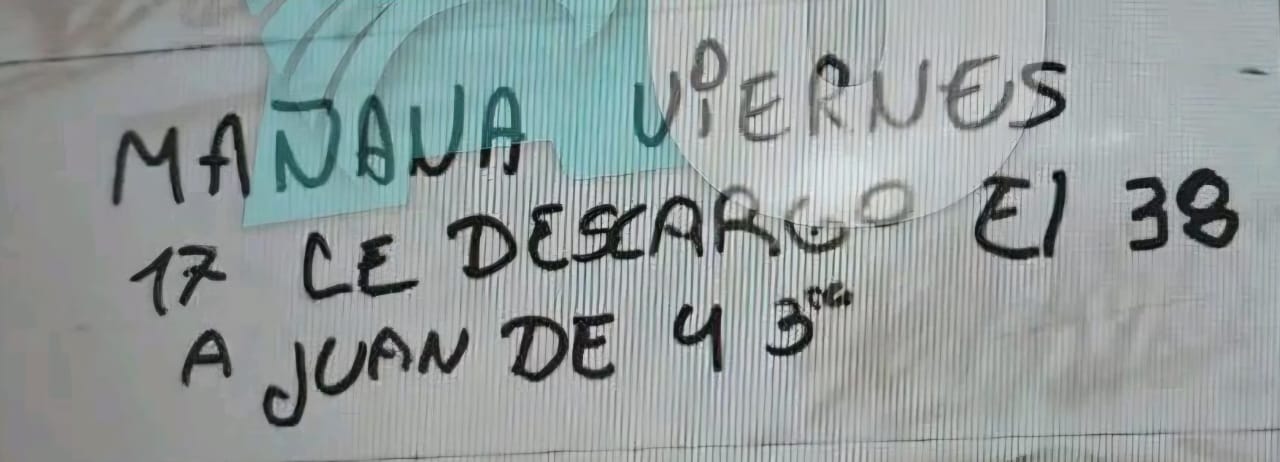 MAÑANA VIERNES
17 CE DESCARGO El 38
A JUAN DE 4 3ra